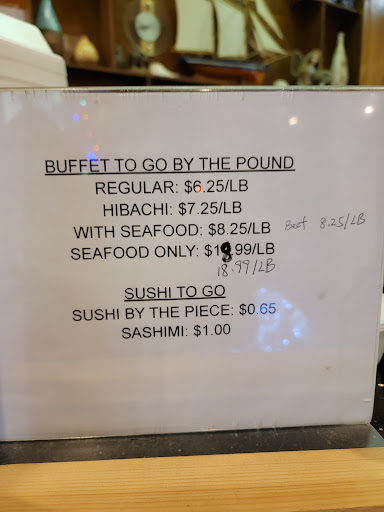 BUFFET TO GO BY THE POUND
REGULAR: $6.25/LB
HIBACHI: $7.25/LB
WITH SEAFOOD: $8.25/LB Beef 8.25/LB
SEAFOOD ONLY: $18.99/LB
18.99/LB
SUSHI TO GO
SUSHI BY THE PIECE: $0.65
SASHIMI: $1.00